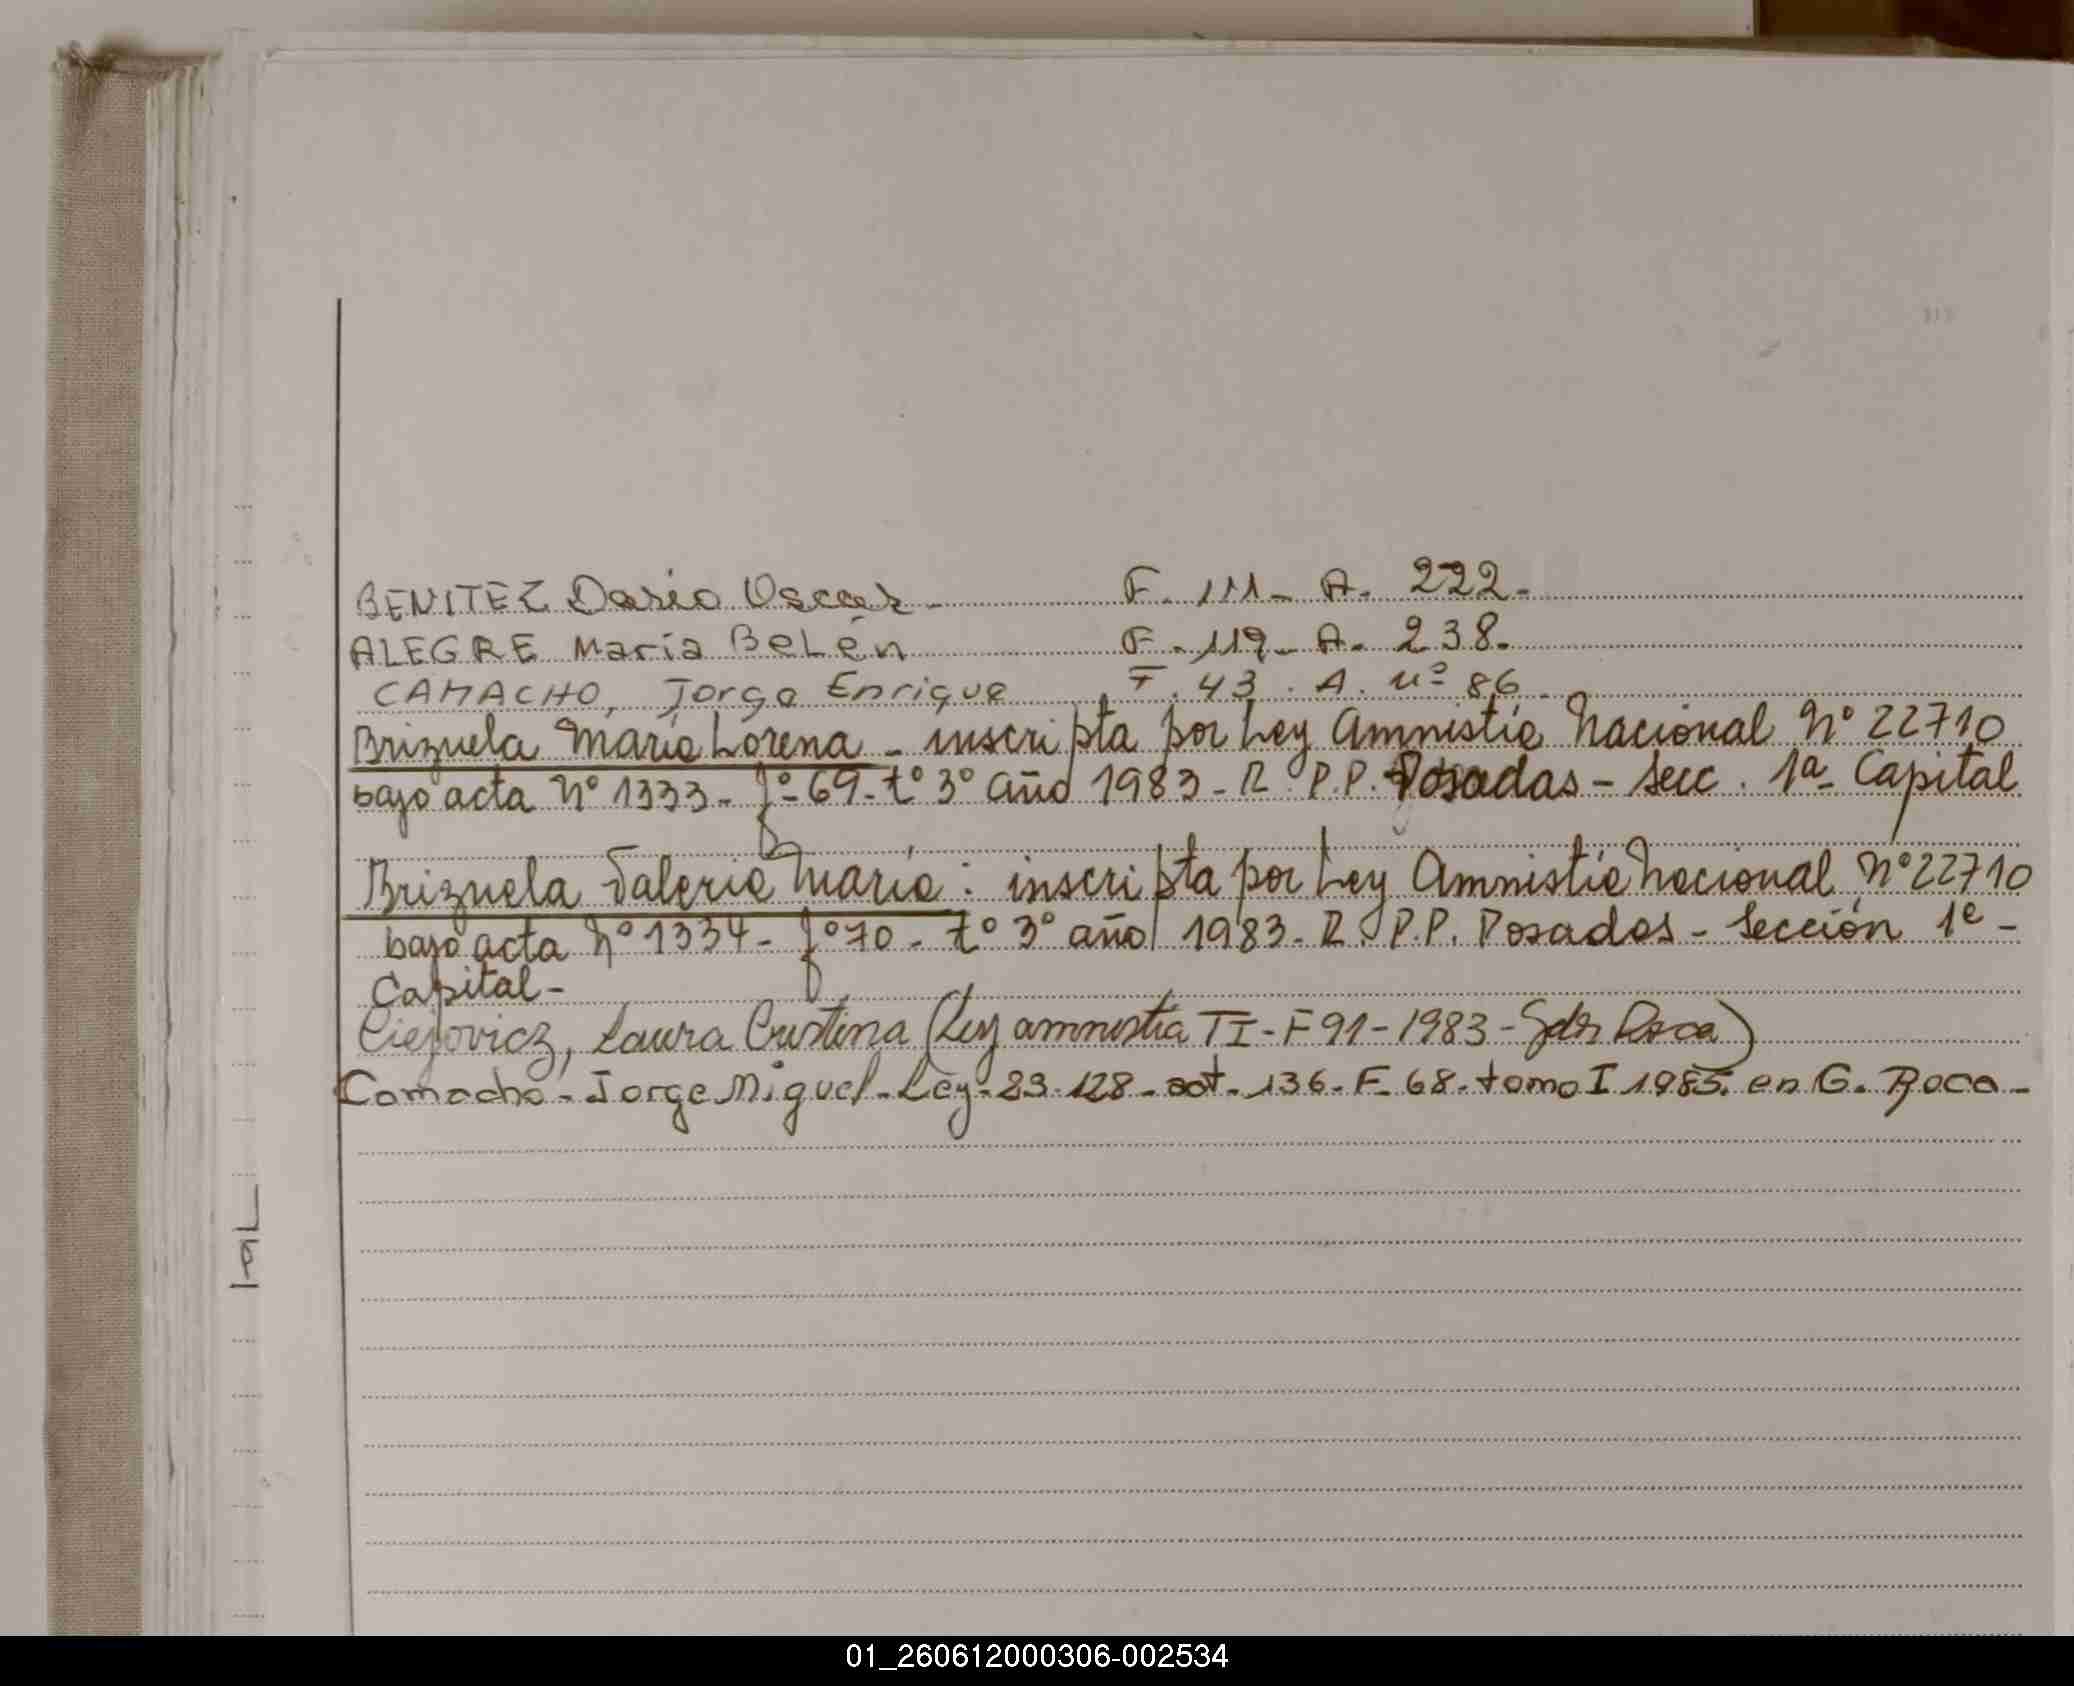 BENITEZ Dario Oscar - F. 111 - A. 222 -
ALEGRE María BeLén F. 119 - A. 238 -
CAMACHO, Jorge Enrique F. 43 . A. nº 86 -
Brizuela María Lorena - inscripta por Ley Amnistía Nacional Nº 22710
bajo acta Nº 1333 - fº 69 - tº 3º año 1983 - R. P.P. Posadas - Secc. 1ª Capital
Brizuela Valeria María : inscripta por Ley Amnistía Nacional Nº 22710
bajo acta Nº 1334 - fº 70 - tº 3º año 1983 - R. P.P. Posadas - Sección 1ª -
Capital -
Ciejovicz, Laura Cristina (Ley amnistia TI - F 91 - 1983 - Roca)
Camacho - Jorge Miguel - Ley - 23.128 - act. 136 - F 68 - tomo I 1985. en G. Roca -
01_260612000306-002534